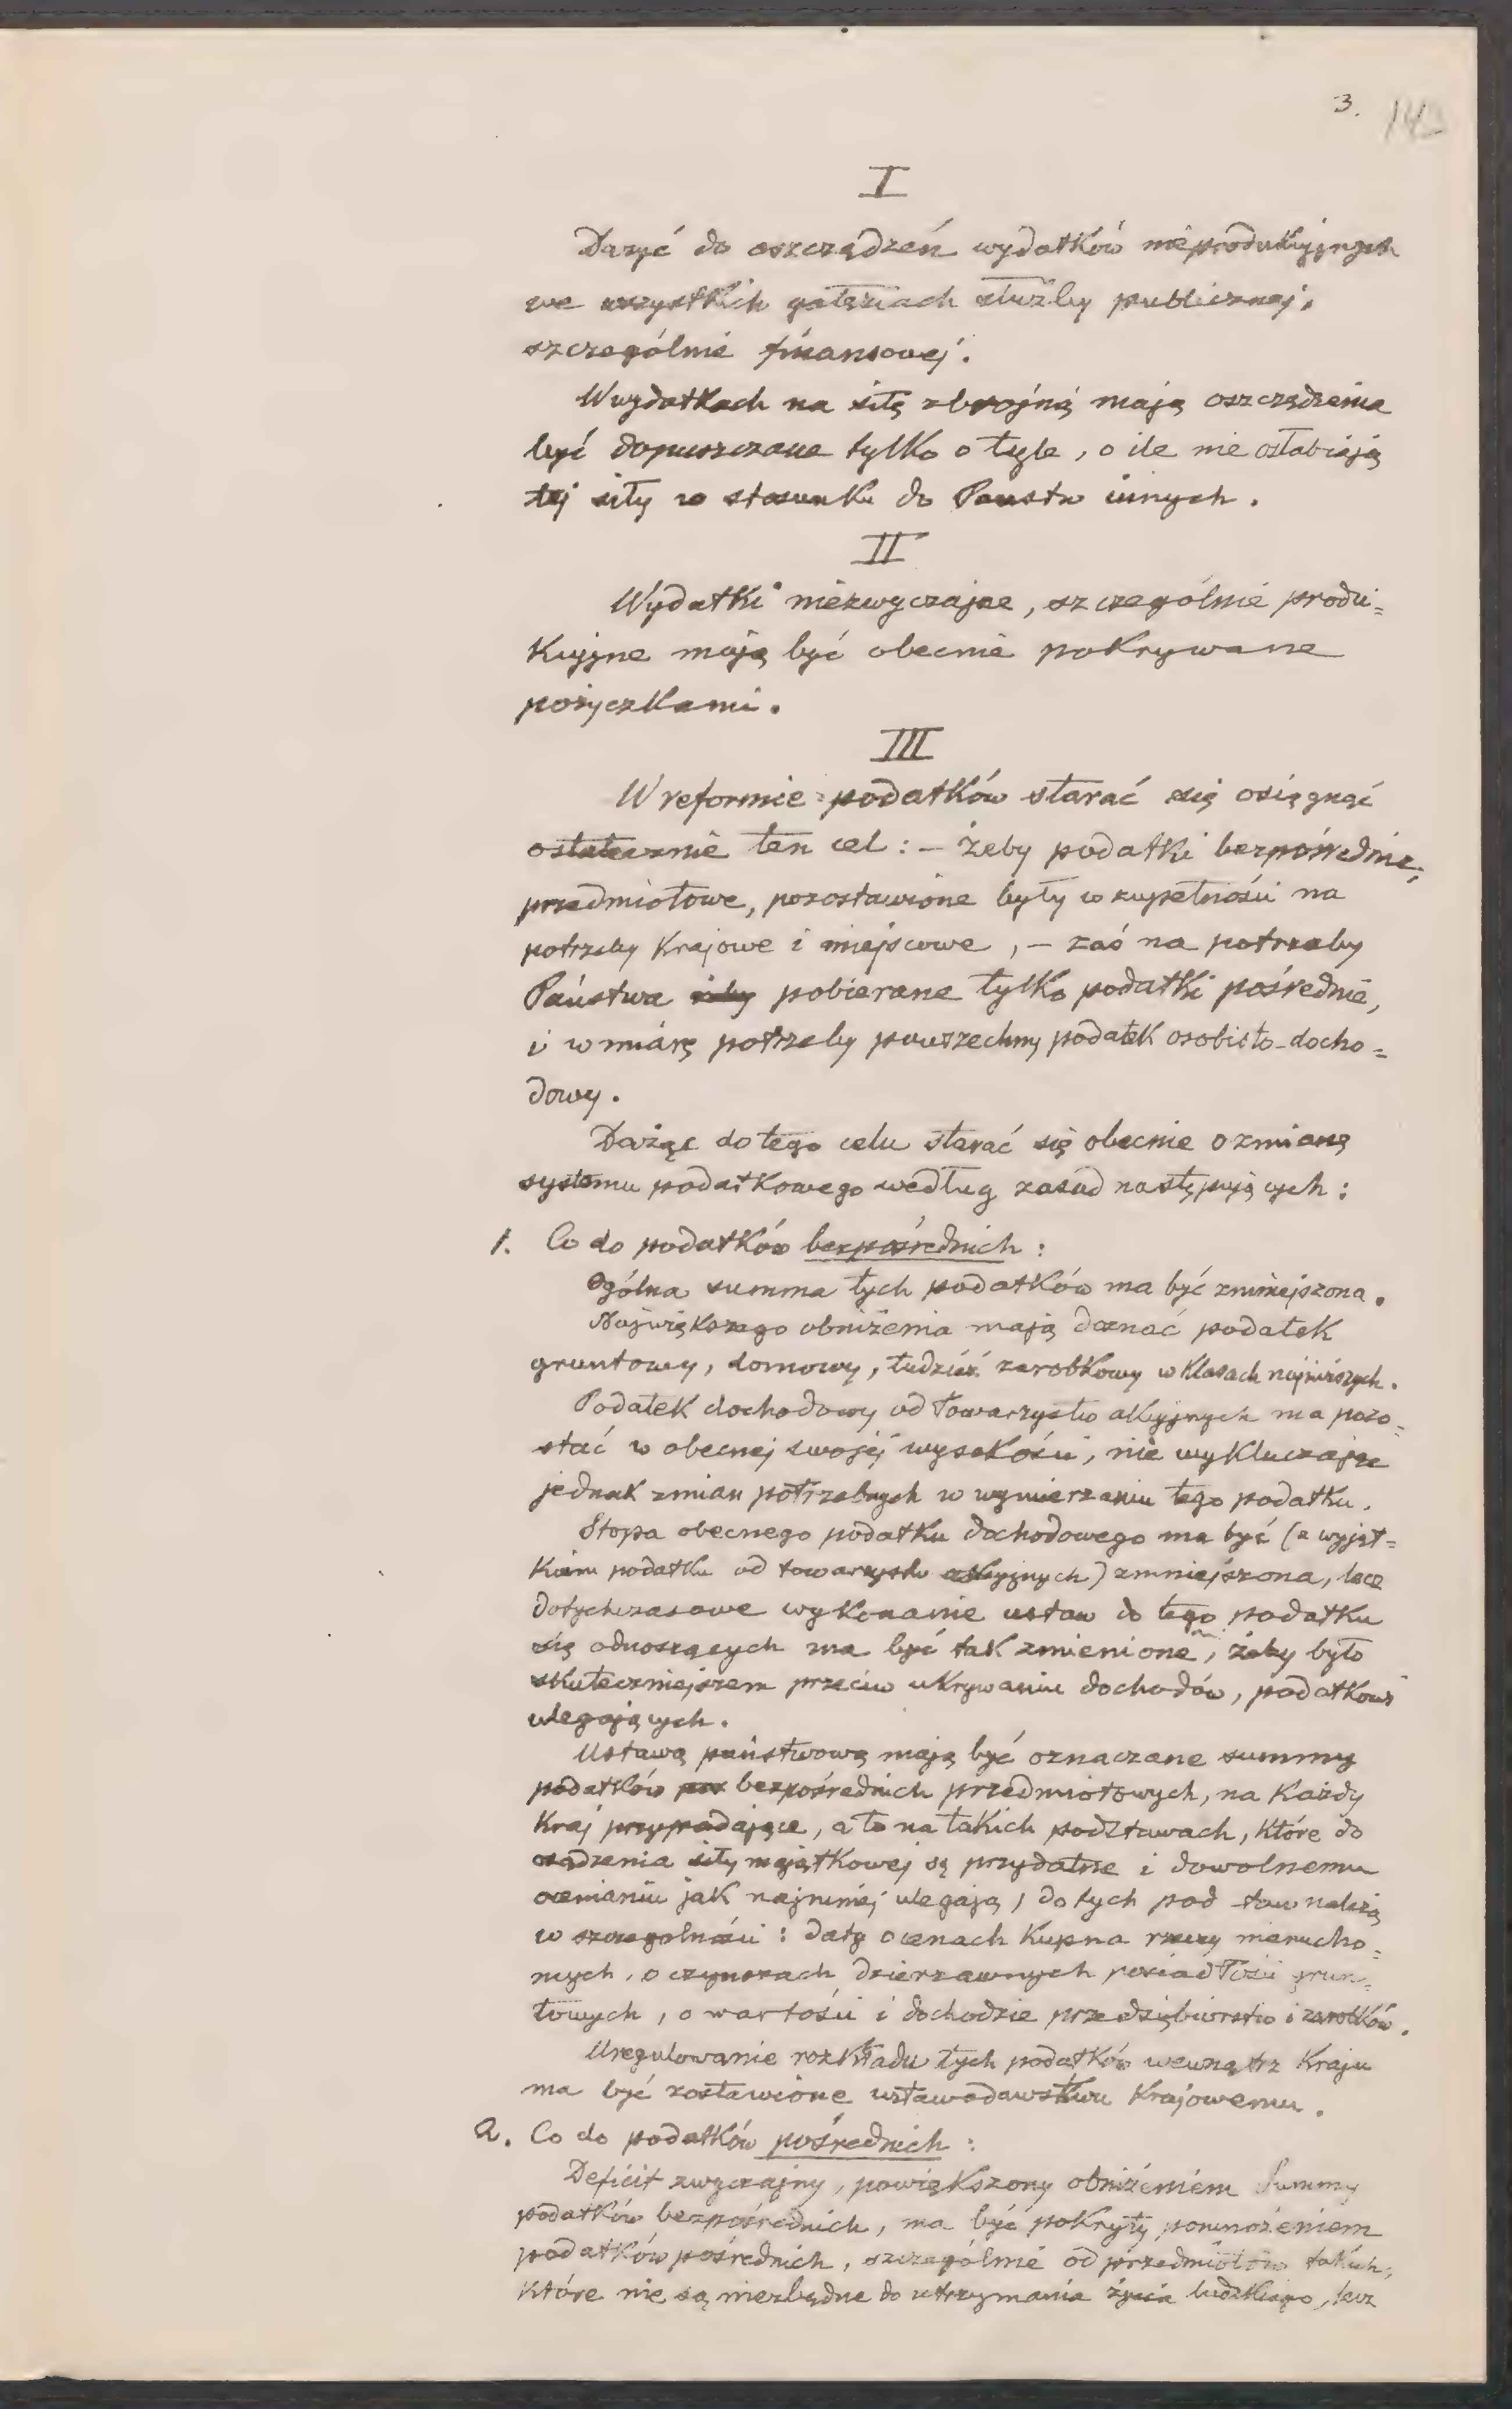 3.
143
I
Dążyć do oszczędzeń wydatków nieprodukcyjnych
we wszystkich gałęziach służby publicznej,
szczególnie finansowej.
W wydatkach na siłę zbrojną mają oszczędzenia
być dopuszczane tylko o tyle, o ile nie osłabiają
tej siły w stosunku do Państw innych.
II
Wydatki niezwyczajne, szczególnie produ=
kcyjne mają być obecnie pokrywane
pożyczkami.
III
W reformie podatków starać się osiągnąć
ostatecznie ten cel: – żeby podatki bezpośrednie,
przedmiotowe, pozostawione były w zupełności na
potrzeby krajowe i miejscowe, – zaś na potrzeby
Państwa pobierane tylko podatki pośrednie,
i w miarę potrzeby powszechny podatek osobisto-docho=
dowy.
Dążąc do tego celu starać się obecnie o zmianę
systemu podatkowego według zasad następujących:
1. Co do podatków bezpośrednich:
Ogólna summa tych podatków ma być zmniejszona.
Największego obniżenia mają doznać podatek
gruntowy, domowy, tudzież zarobkowy w klasach najniższych.
Podatek dochodowy od towarzystw akcyjnych ma pozo=
stać w obecnej swojej wysokości, nie wykluczając
jednak zmian potrzebnych w wymierzaniu tego podatku.
Stopa obecnego podatku dochodowego ma być (z wyjąt=
kiem podatku od towarzystw akcyjnych) zmniejszona, lecz
dotychczasowe wykonanie ustaw do tego podatku
się odnoszących ma być tak zmienione, żeby było
skuteczniejszem przeciw ukrywaniu dochodów, podatkowi
ulegających.
Ustawą państwową mają być oznaczane summy
podatków bezpośrednich przedmiotowych, na każdy
Kraj przypadające, a to na takich podstawach, które do
osądzenia siły majątkowej są przydatne i dowolnemu
ocenianiu jak najmniej ulegają; do tych pod staw należą
w szczególności: daty o cenach kupna rzeczy nierucho=
mych, o czynszach dzierżawnych posiadłości grun=
towych, o wartości i dochodzie przedsiębiorstw i zarobków.
Uregulowanie rozkładu tych podatków wewnątrz Kraju
ma być zostawione ustawodawstwu Krajowemu.
2. Co do podatków pośrednich:
Deficit zwyczajny, powiększony obniżeniem Summy
podatków bezpośrednich, ma być pokryty pomnożeniem
podatków pośrednich, szczególnie od przedmiotów takich,
które nie są niezbędne do utrzymania życia ludzkiego, lecz